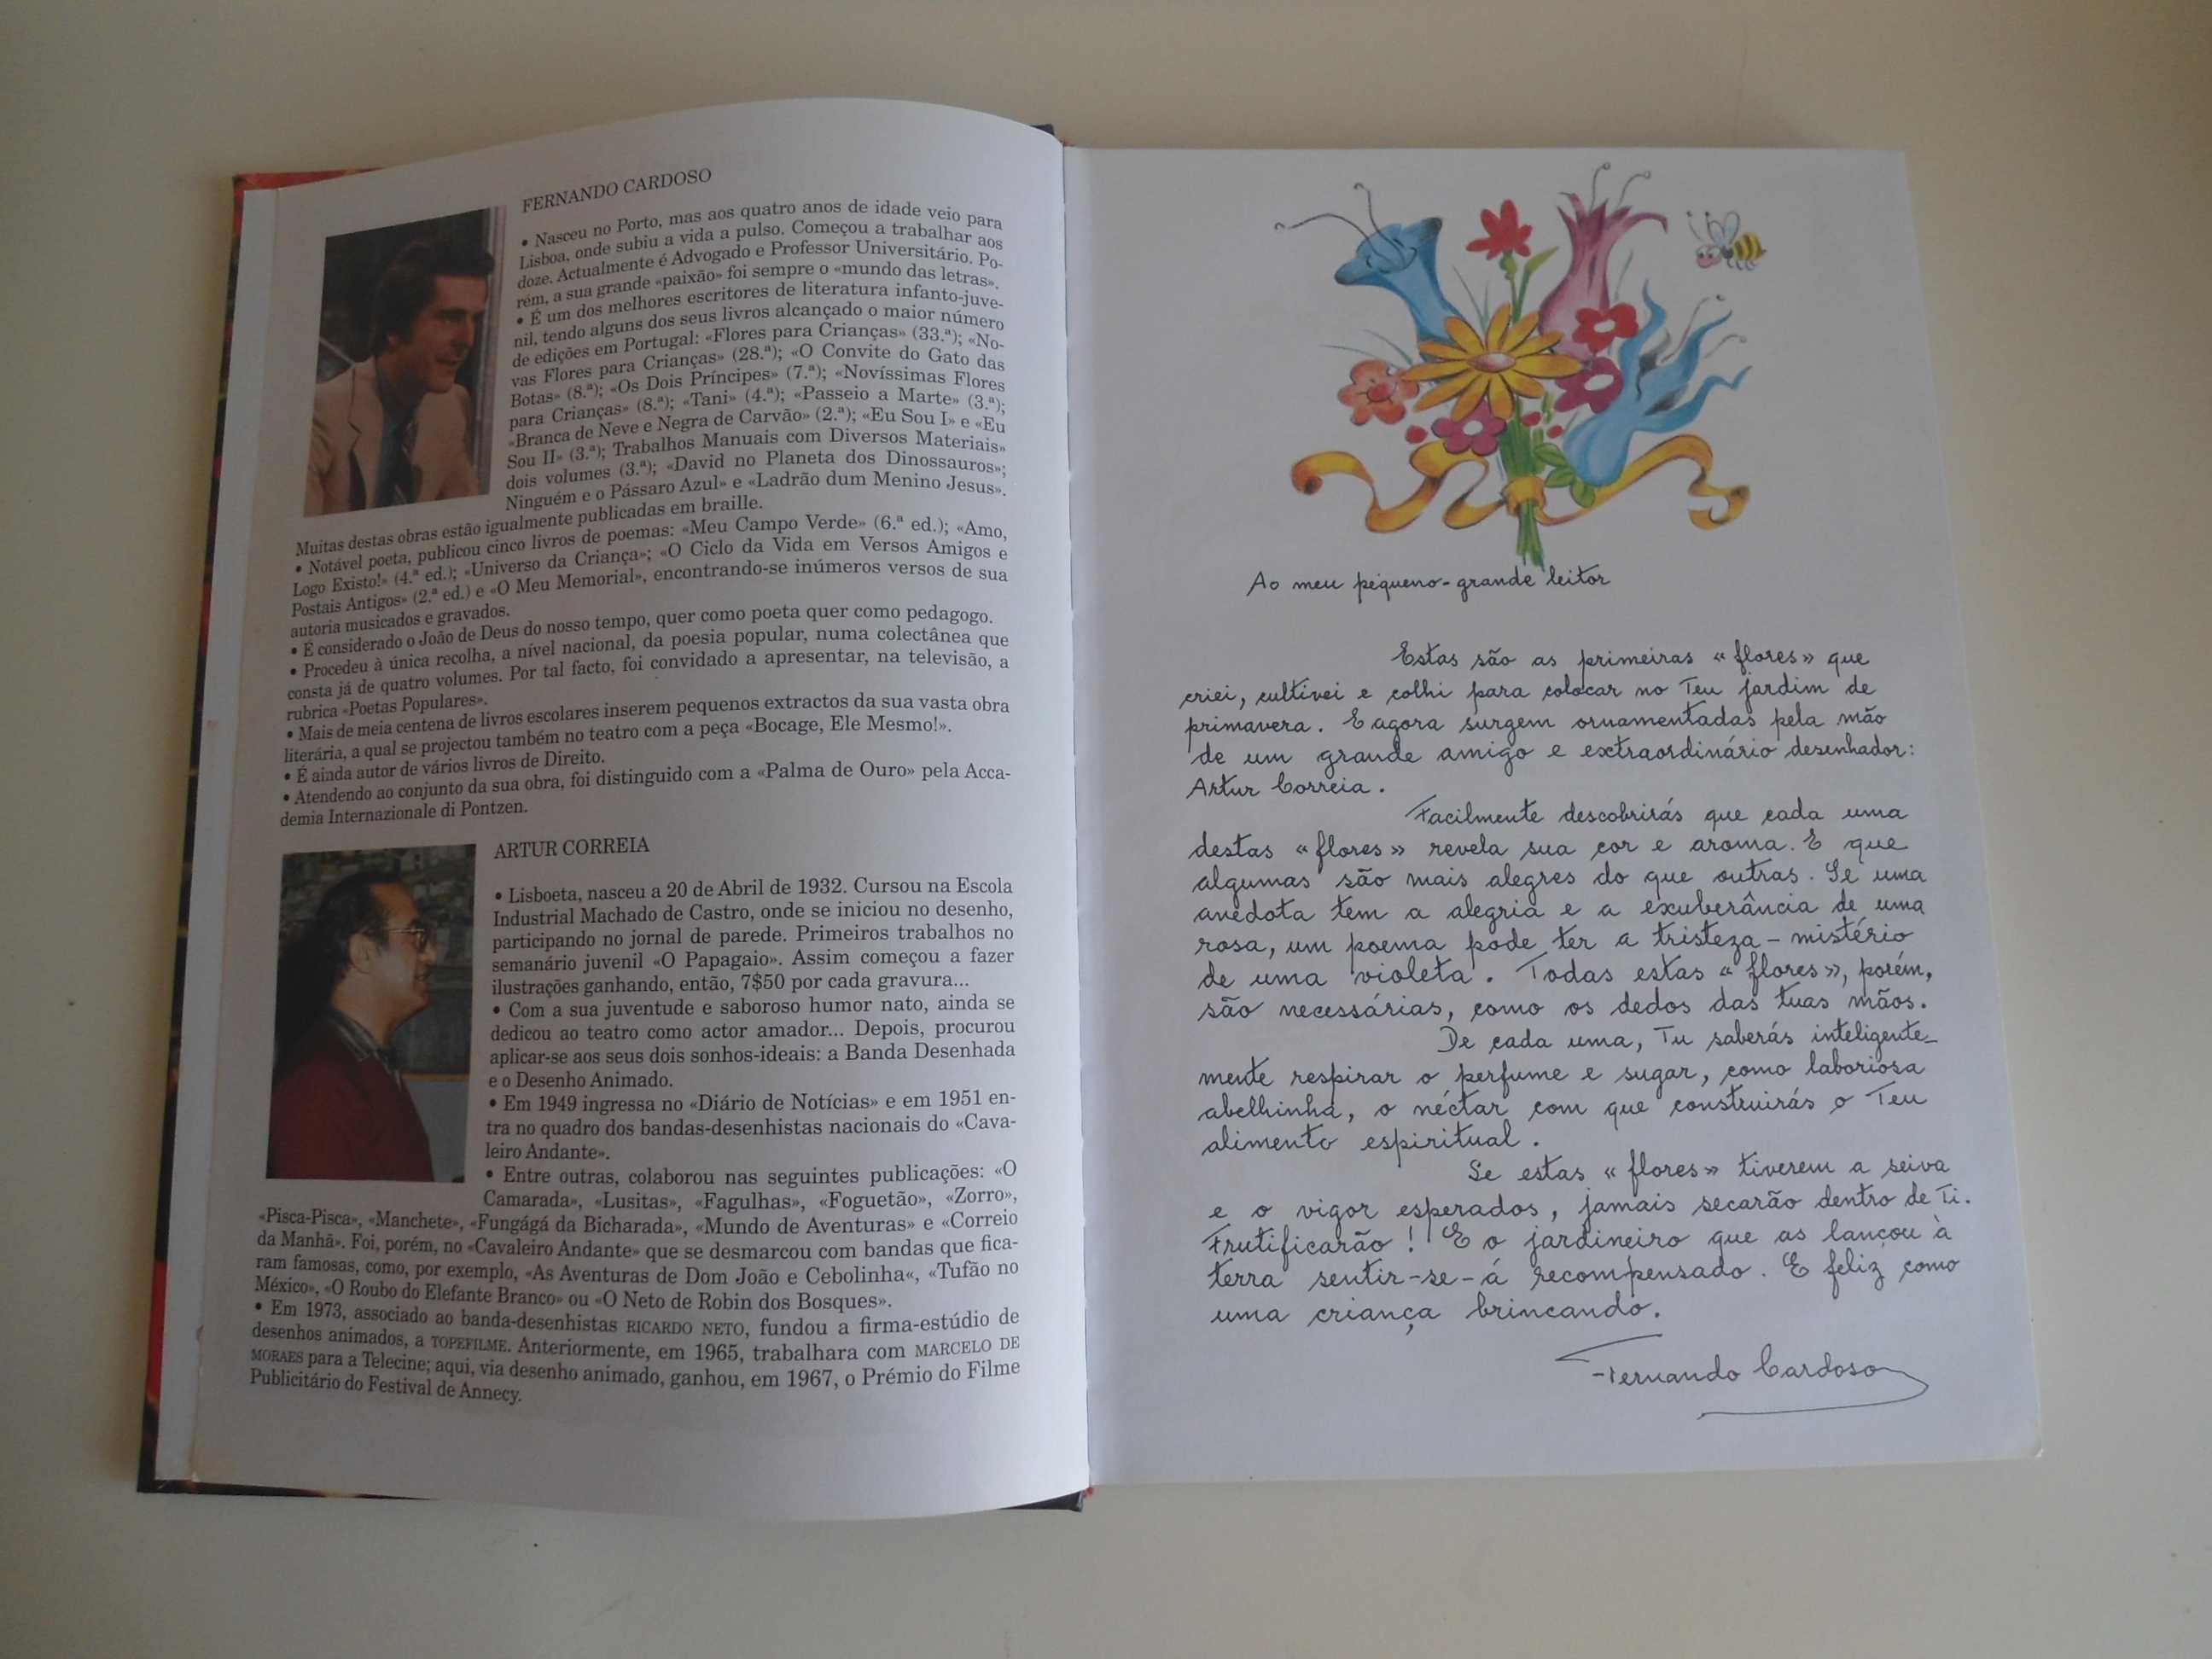 FERNANDO CARDOSO
• Nasceu no Porto, mas aos quatro anos de idade veio para
Lisboa, onde subiu a vida a pulso. Começou a trabalhar aos
doze. Actualmente é Advogado e Professor Universitário. Po-
rém, a sua grande «paixão» foi sempre o «mundo das letras».
• É um dos melhores escritores de literatura infanto-juve-
nil, tendo alguns dos seus livros alcançado o maior número
de edições em Portugal: «Flores para Crianças» (33.ª); «No-
vas Flores para Crianças» (28.ª); «O Convite do Gato das
Botas» (8.ª); «Os Dois Príncipes» (7.ª); «Novíssimas Flores
para Crianças» (8.ª); «Tani» (4.ª); «Passeio a Marte» (3.ª);
«Branca de Neve e Negra de Carvão» (2.ª); «Eu Sou I» e «Eu
Sou II» (3.ª); Trabalhos Manuais com Diversos Materiais»
dois volumes (3.ª); «David no Planeta dos Dinossauros»;
Ninguém e o Pássaro Azul» e «Ladrão dum Menino Jesus».
Muitas destas obras estão igualmente publicadas em braille.
• Notável poeta, publicou cinco livros de poemas: «Meu Campo Verde» (6.ª ed.); «Amo,
Logo Existo!» (4.ª ed.); «Universo da Criança»; «O Ciclo da Vida em Versos Amigos e
Postais Antigos» (2.ª ed.) e «O Meu Memorial», encontrando-se inúmeros versos de sua
autoria musicados e gravados.
• É considerado o João de Deus do nosso tempo, quer como poeta quer como pedagogo.
• Procedeu à única recolha, a nível nacional, da poesia popular, numa colectânea que
consta já de quatro volumes. Por tal facto, foi convidado a apresentar, na televisão, a
rubrica «Poetas Populares».
• Mais de meia centena de livros escolares inserem pequenos extractos da sua vasta obra
literária, a qual se projectou também no teatro com a peça «Bocage, Ele Mesmo!».
• É ainda autor de vários livros de Direito.
• Atendendo ao conjunto da sua obra, foi distinguido com a «Palma de Ouro» pela Acca-
demia Internazionale di Pontzen.
ARTUR CORREIA
• Lisboeta, nasceu a 20 de Abril de 1932. Cursou na Escola
Industrial Machado de Castro, onde se iniciou no desenho,
participando no jornal de parede. Primeiros trabalhos no
semanário juvenil «O Papagaio». Assim começou a fazer
ilustrações ganhando, então, 7$50 por cada gravura...
• Com a sua juventude e saboroso humor nato, ainda se
dedicou ao teatro como actor amador... Depois, procurou
aplicar-se aos seus dois sonhos-ideais: a Banda Desenhada
e o Desenho Animado.
• Em 1949 ingressa no «Diário de Notícias» e em 1951 en-
tra no quadro dos bandas-desenhistas nacionais do «Cava-
leiro Andante».
• Entre outras, colaborou nas seguintes publicações: «O
Camarada», «Lusitas», «Fagulhas», «Foguetão», «Zorro»,
«Pisca-Pisca», «Manchete», «Fungágá da Bicharada», «Mundo de Aventuras» e «Correio
da Manhã». Foi, porém, no «Cavaleiro Andante» que se desmarcou com bandas que fica-
ram famosas, como, por exemplo, «As Aventuras de Dom João e Cebolinha«, «Tufão no
México», «O Roubo do Elefante Branco» ou «O Neto de Robin dos Bosques».
• Em 1973, associado ao banda-desenhistas RICARDO NETO, fundou a firma-estúdio de
desenhos animados, a TOPEFILME. Anteriormente, em 1965, trabalhara com MARCELO DE
MORAES para a Telecine; aqui, via desenho animado, ganhou, em 1967, o Prémio do Filme
Publicitário do Festival de Annecy.
Ao meu pequeno-grande leitor
Estas são as primeiras «flores» que
criei, cultivei e colhi para colocar no Teu jardim de
primavera. E agora surgem ornamentadas pela mão
de um grande amigo e extraordinário desenhador:
Artur Correia.
Facilmente descobrirás que cada uma
destas «flores» revela sua cor e aroma. E que
algumas são mais alegres do que outras. Se uma
anedota tem a alegria e a exuberância de uma
rosa, um poema pode ter a tristeza-mistério
de uma violeta. Todas estas «flores», porém,
são necessárias, como os dedos das tuas mãos.
De cada uma, Tu saberás inteligente-
mente respirar o perfume e sugar, como laboriosa
abelhinha, o néctar com que construirás o Teu
alimento espiritual.
Se estas «flores» tiverem a seiva
e o vigor esperados, jamais secarão dentro de Ti.
Frutificarão! E o jardineiro que as lançou à
terra sentir-se-á recompensado. E feliz como
uma criança brincando.
Fernando Cardoso